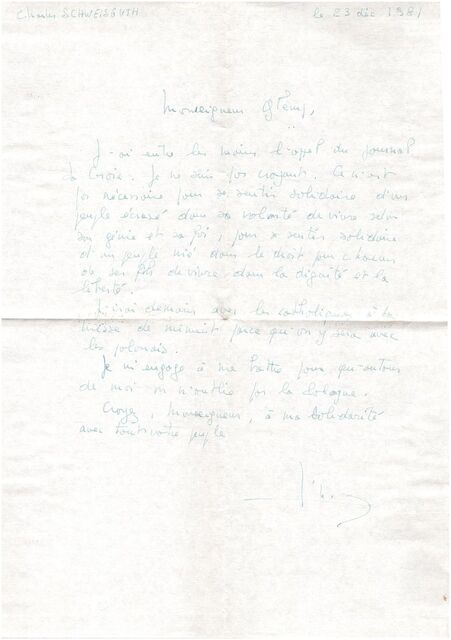 Charles SCHWEISGUTH le 23 déc 1981
Monseigneur Glemp,
J'ai entre les mains l'appel du journal
la Croix. Je ne suis pas croyant. Ce n'est
pas nécessaire pour se sentir solidaire d'un
peuple écrasé dans sa volonté de vivre selon
son génie et sa foi, pour se sentir solidaire
d'un peuple nié dans le droit pour chacun
de ses fils de vivre dans la dignité et la
liberté.
J'irai demain avec les catholiques à la
messe de minuit parce qu'on y sera avec
les polonais.
Je m'engage à me battre pour qu'autour
de moi on n'oublie pas la Pologne.
Croyez, Monseigneur, à ma solidarité
avec tout votre peuple